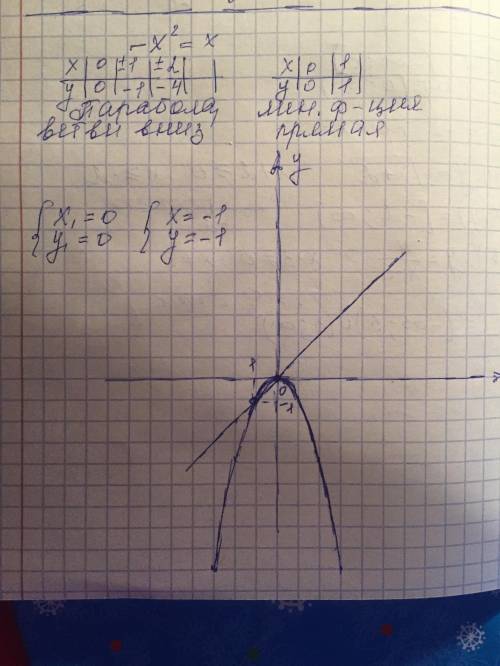 -x² = x
x | 0 | ±1 | ±2 |
y | 0 | -1 | -4 |
Парабола,
ветви вниз
x | 0 | 1 |
y | 0 | 1 |
лин. ф-ция
прямая
{ x₁ = 0
y₁ = 0
{ x = -1
y = -1
y
1
0
-1